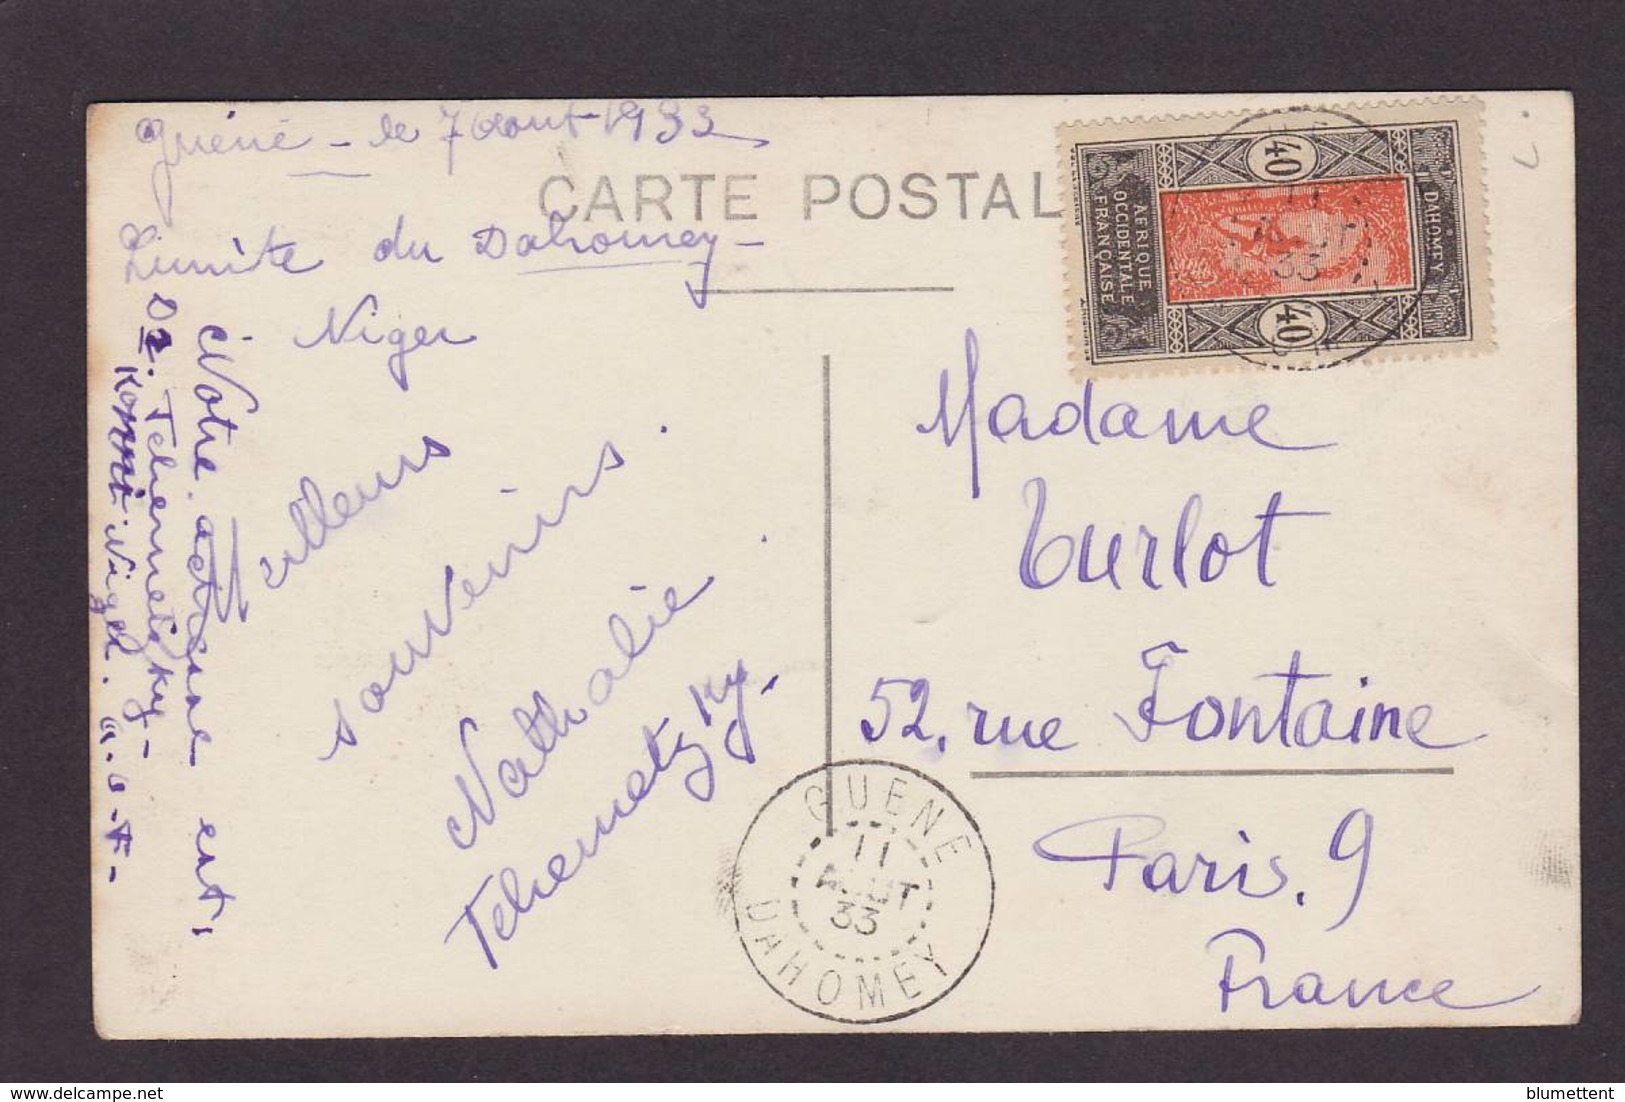 Guéné - le 7 août 1933
CARTE POSTAL
Limite du Dahomey -
Niger
Meilleurs
souvenirs.
Nathalie
Tchernetzky.
Notre adresse est,
Dr. Tchernetzky -
Niger. A.O.F-
AFRIQUE
OCCIDENTALE
FRANÇAISE
40
40
DAHOMEY
11
AOUT
33
Madame
Turlot
52, rue Fontaine
Paris. 9
France
GUENE
11
AOUT
33
DAHOMEY
blumettent